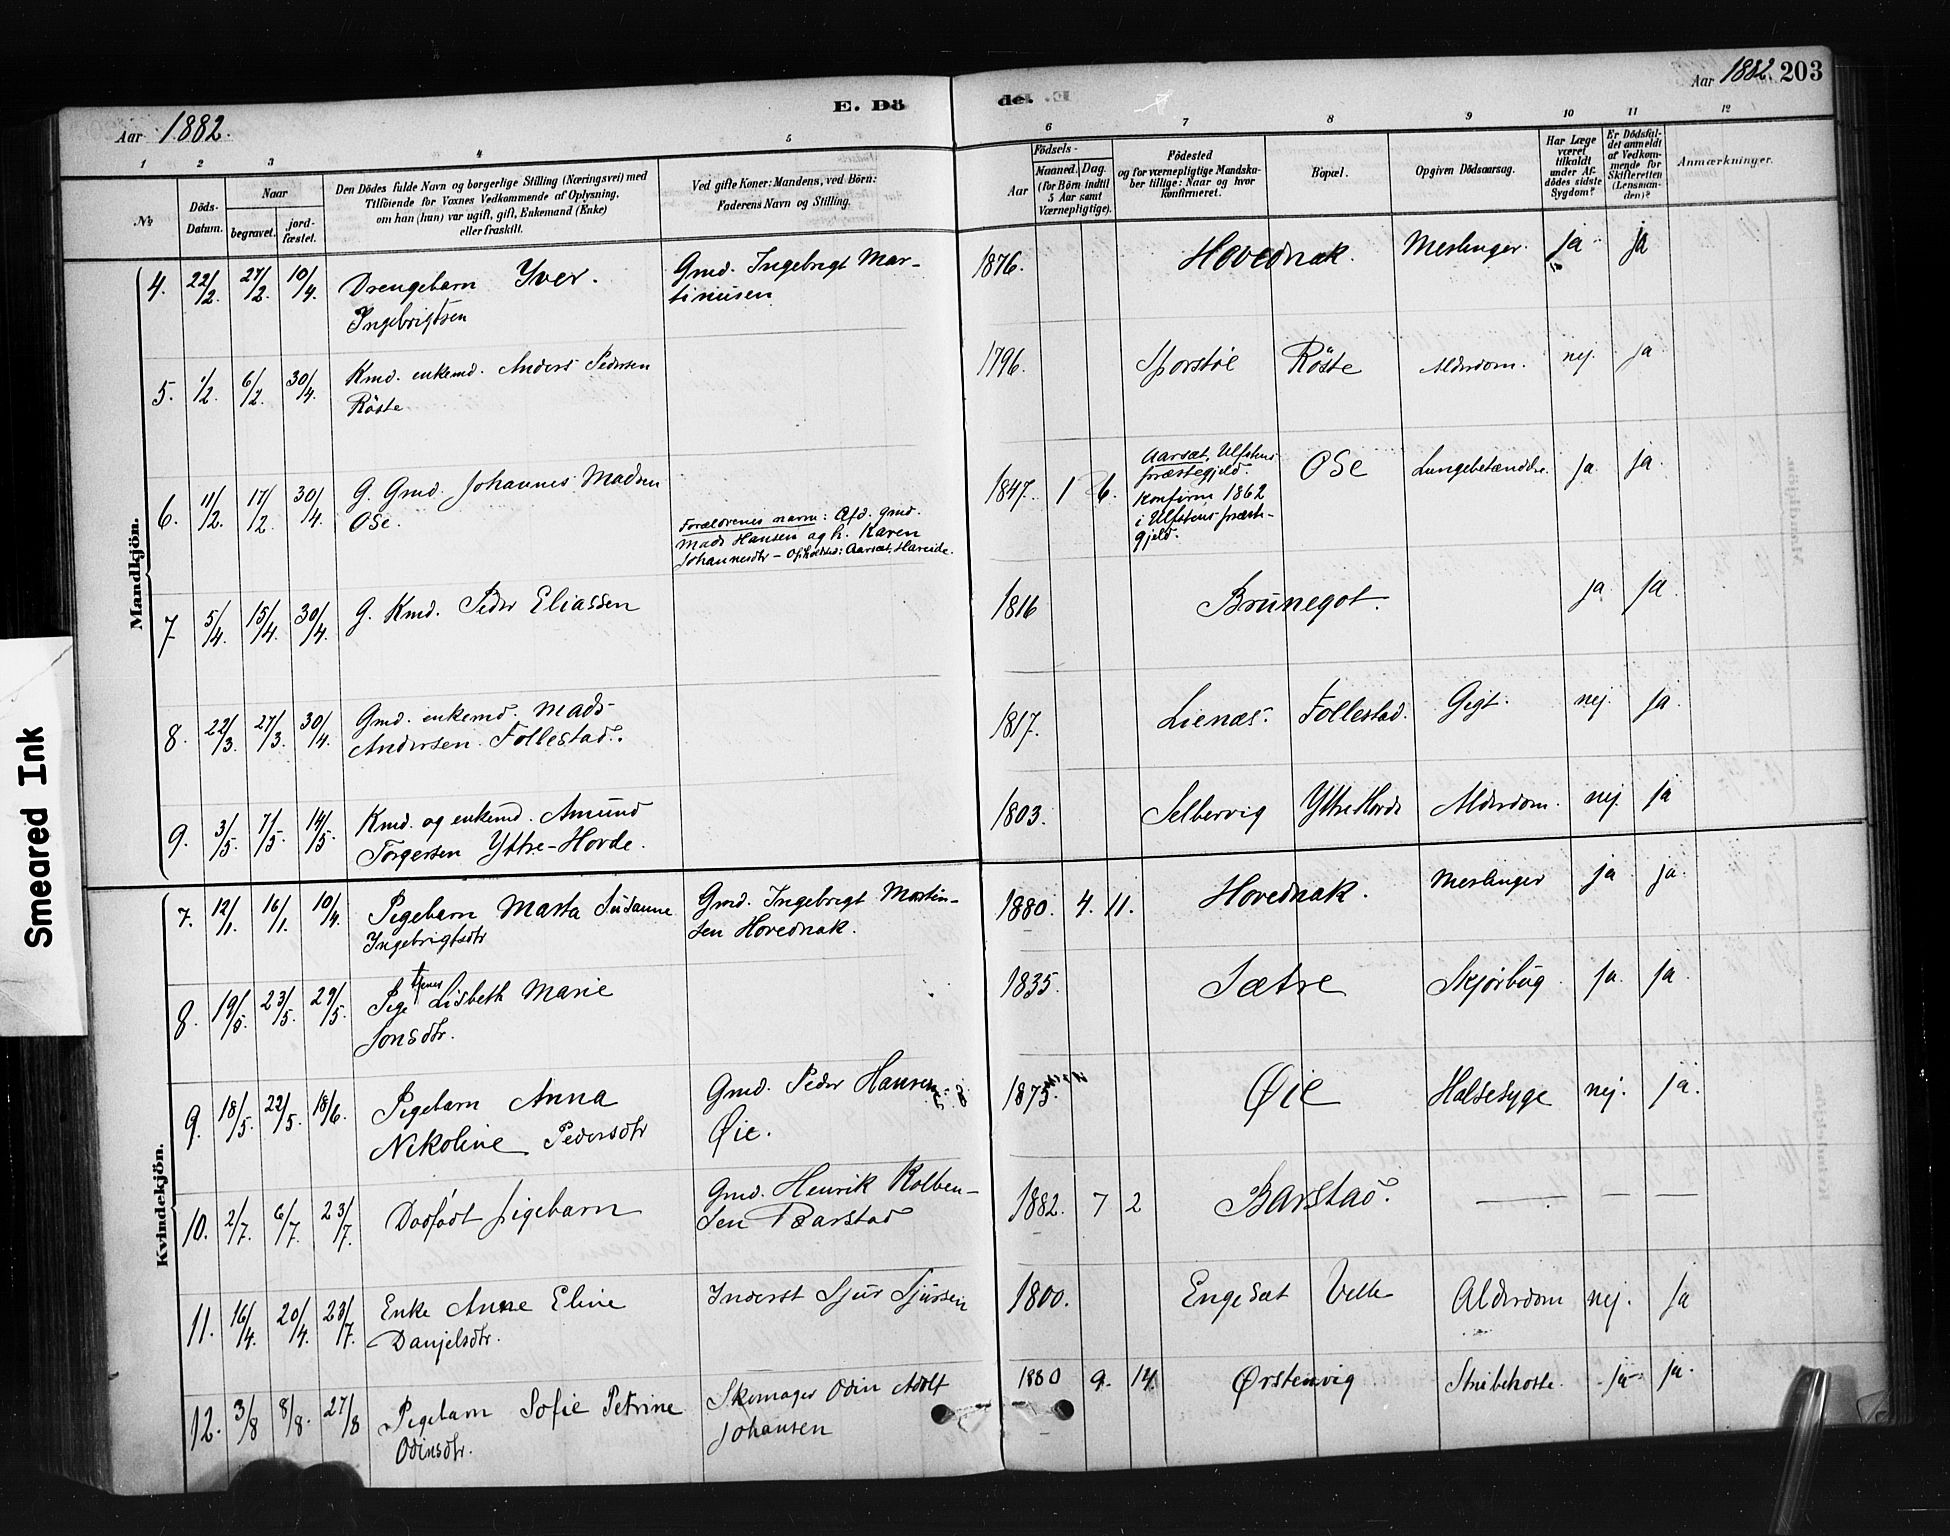 Aar 1882.
E. Dö
de.
Aar 1882. 203
1 2 3 4 5 6 7 8 9 10 11 12
№
Döds-
Datum.
Naar
begravet.
jord-
fæstet.
Den Dödes fulde Navn og borgerlige Stilling (Næringsvei) med
Tilföiende for Voxnes Vedkommende af Oplysning,
om han (hun) var ugift, gift, Enkemand (Enke)
eller fraskilt.
Ved gifte Koner: Mandens, ved Börn:
Faderens Navn og Stilling.
Födsels-
Aar
Maaned.
Dag.
(for Börn indtil
5 Aar samt
Værnepligtige).
Födested
og for værnepligtige Mandska-
ber tillige: Naar og hvor
konfirmeret.
Bopæl.
Opgiven Dödsaarsag.
Har Læge
været
tilkaldt
under Af-
dödes sidste
Sygdom?
Er Dödsfal-
det anmeldt
af Vedkom-
mende for
Skifteretten
(Lensman-
den)?
Anmærkninger.
Mandkjön.
4. 22/2. 27/2. 10/4. Drengebarn Yver.
Ingebrigtsen
Gmd. Ingebrigt Mar-
tinusen
1876. Hovednak. Meslinger. ja ja
5. 1/2. 6/2. 30/4. Kmd. enkemd. Anders Pedersen
Röste
1796. Sporstøl Röste Alderdom. nej. ja
6. 11/2. 17/2. 30/4. G. Gmd. Johannes Madsen
Ose.
Forældrenes navn: Afd. gmd.
Mads Hansen og h. Karen
Johannesdtr - Opholdsted: Aarsæt, Hareide.
1847. 1 6.
Aarsæt, Ulfstens
præstegjeld.
Konfirm 1862
i Ulfstens præste-
gjeld.
Ose Lungebetændelse. ja ja.
7 5/4. 15/4. 30/4. G. Kmd. Peder Eliassen
1816 Brunegot. ja ja.
8. 22/3. 27/3. 30/4. Gmd. enkemd. Mads
Andersen Follestad.
1817. Lienæs. Follestad. Gigt. nej. ja.
9. 3/5. 7/5. 14/5. Kmd. og enkemd. Amund
Torgersen Yttre-Hovde.
1803. Selbervig Yttre Hovde Alderdom. nej. ja
Kvindekjön.
7. 12/1. 16/1. 10/4. Pigebarn Marta Susanne
Ingebrigtsdtr
Gmd. Ingebrigt Martin-
sen Hovednak.
1880. 4. 11. Hovednak. Meslinger ja ja.
8. 19/5. 23/5. 29/5. Pige Lisbeth Marie
Jonsdtr.
1835. Sætre Skjørbug. ja. ja.
9. 18/5. 22/5. 18/6. Pigebarn Anna
Nikoline Pedersdtr
Gmd. Peder Hansen
Øie.
1875. Øie Halsesyge nej. ja.
10. 2/7. 6/7. 23/7. Dødfødt pigebarn
Gmd. Henrik Kolben-
sen Barstad
1882. 7 2 Barstad. — — —
11. 16/4. 20/4. 23/7. Enke Anne Eline
Danjelsdtr.
Inderst Sjur Sjursen
1800. Engesæt Velle Alderdom nej. ja
12. 3/8 8/8. 27/8 Pigebarn Sofie Petrine
Odinsdtr.
Skomager Odin Adolf
Johansen
1880 9. 14. Ørstenvig Strubehoste. ja ja.
Smeared Ink